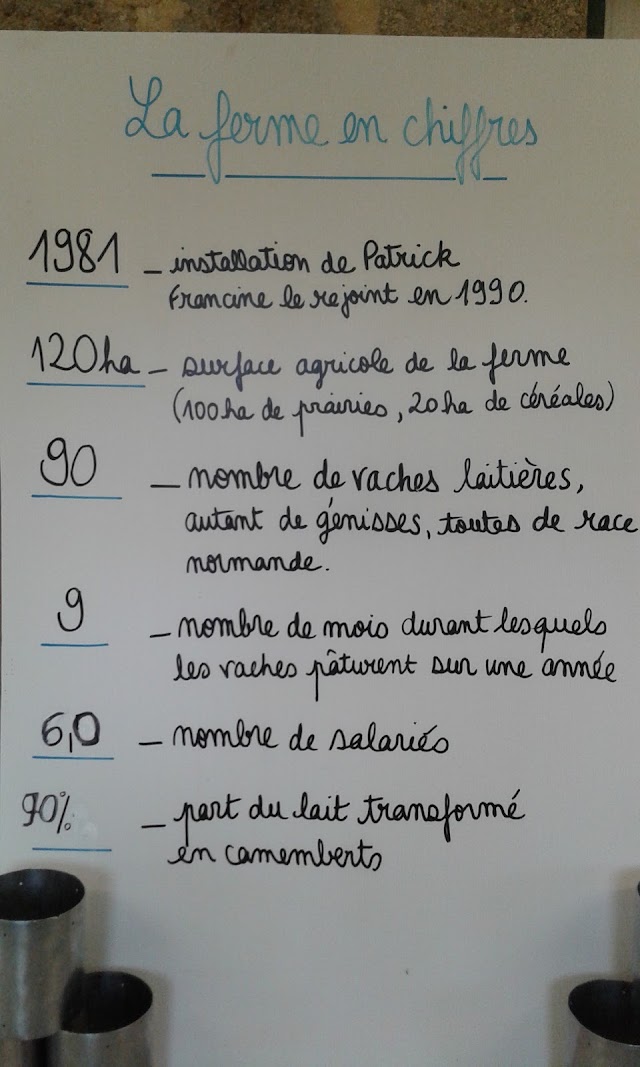 La ferme en chiffres
1981 - installation de Patrick
Francine le rejoint en 1990.
120ha - surface agricole de la ferme
(100ha de prairies, 20ha de céréales)
90 - nombre de vaches laitières,
autant de génisses, toutes de race
normande.
9 - nombre de mois durant lesquels
les vaches pâturent sur une année
6,0 - nombre de salariés
90% - part du lait transformé
en camemberts